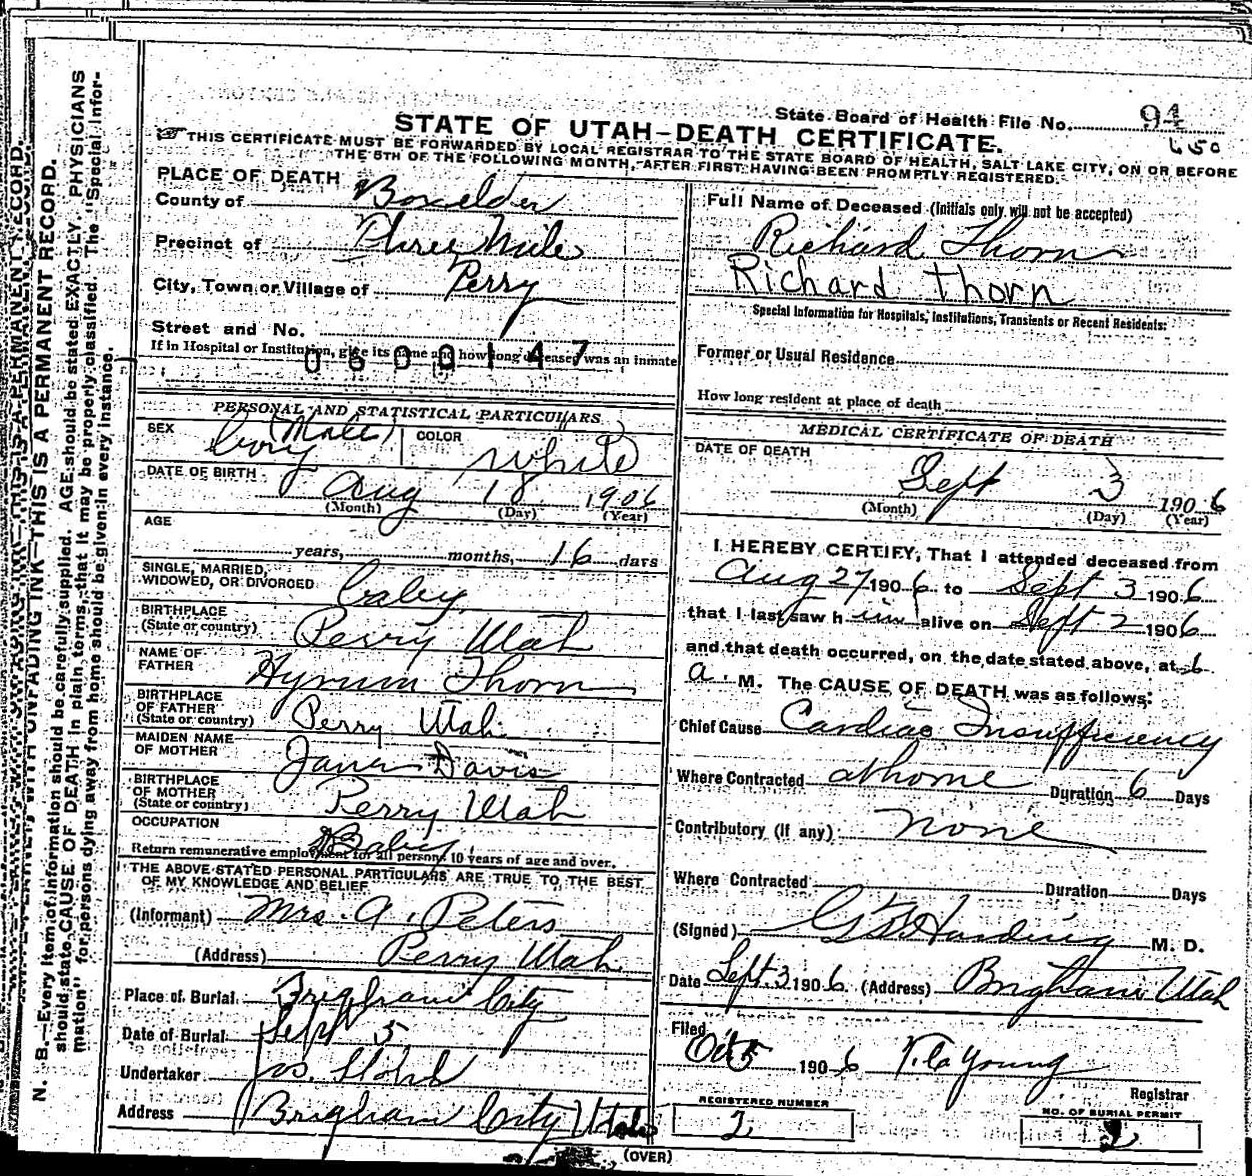 State Board of Health File No. 94
650
STATE OF UTAH—DEATH CERTIFICATE.
THIS CERTIFICATE MUST BE FORWARDED BY LOCAL REGISTRAR TO THE STATE BOARD OF HEALTH, SALT LAKE CITY, ON OR BEFORE
THE 5TH OF THE FOLLOWING MONTH, AFTER FIRST HAVING BEEN PROMPTLY REGISTERED.
PLACE OF DEATH
County of Boxelder
Precinct of Three Mile
City, Town or Village of Perry
Street and No.
If in Hospital or Institution, give its name and how long deceased was an inmate
0600147
PERSONAL AND STATISTICAL PARTICULARS
SEX Boy (Male) COLOR White
DATE OF BIRTH
Aug 18 1906
(Month) (Day) (Year)
AGE
years, months, 16 days
SINGLE, MARRIED,
WIDOWED, OR DIVORCED Baby
BIRTHPLACE
(State or country) Perry Utah
NAME OF
FATHER Hyrum Thorn
BIRTHPLACE
OF FATHER
(State or country) Perry Utah
MAIDEN NAME
OF MOTHER Jane Davis
BIRTHPLACE
OF MOTHER
(State or country) Perry Utah
OCCUPATION Baby
Return remunerative employment for all persons 10 years of age and over.
THE ABOVE STATED PERSONAL PARTICULARS ARE TRUE TO THE BEST
OF MY KNOWLEDGE AND BELIEF
(Informant) Mrs. A. Peters
(Address) Perry Utah
Place of Burial Brigham City
Date of Burial Sept 5
Undertaker Jos.
Address Brigham City Utah
Full Name of Deceased (Initials only will not be accepted)
Richard Thorn
Richard Thorn
Special Information for Hospitals, Institutions, Transients or Recent Residents:
Former or Usual Residence
How long resident at place of death
MEDICAL CERTIFICATE OF DEATH
DATE OF DEATH
Sept 3 1906
(Month) (Day) (Year)
I HEREBY CERTIFY, That I attended deceased from
Aug 27 1906 to Sept 3 1906
that I last saw h im alive on Sept 2 1906
and that death occurred, on the date stated above, at 6
a. M. The CAUSE OF DEATH was as follows:
Chief Cause Cardiac Insufficiency
Where Contracted at home Duration 6 Days
Contributory (if any) none
Where Contracted Duration Days
(Signed) Harding M. D.
Date Sept. 3 1906 (Address) Brigham Utah
Filed
Oct 5 1906 Young
Registrar
REGISTERED NUMBER
2
NO. OF BURIAL PERMIT
2
(OVER)
N. B.—Every item of information should be carefully supplied. AGE should be stated EXACTLY. PHYSICIANS
should state CAUSE OF DEATH in plain terms, that it may be properly classified. The "Special Information" for persons dying away from home should be given in every instance.
WITH UNFADING INK—THIS IS A PERMANENT RECORD.